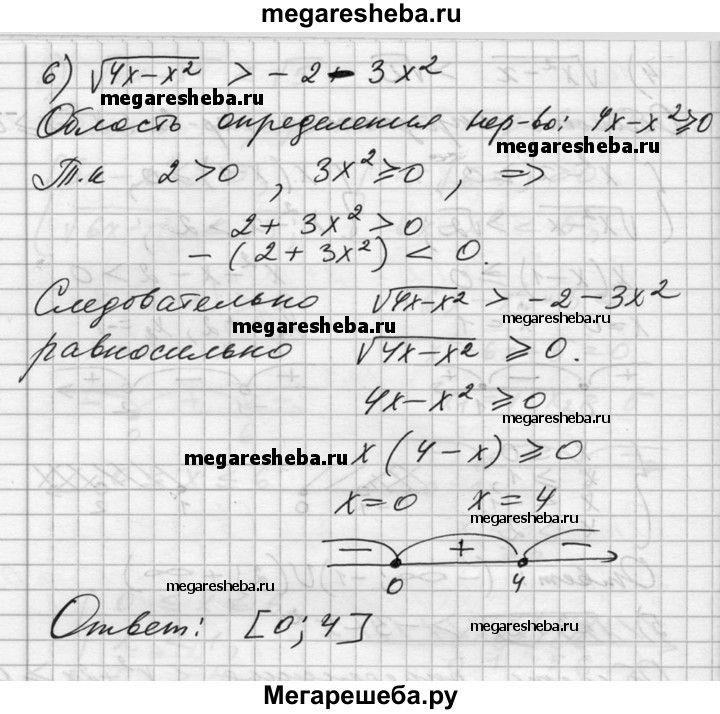 megaresheba.ru
6) √4x-x² > -2 - 3x²
megaresheba.ru
Область определения нер-во: 4x-x² ≥ 0
megaresheba.ru
Т.к 2>0 , 3x² ≥ 0 , =>
2 + 3x² > 0
- (2 + 3x²) < 0.
Следовательно √4x-x² > -2-3x²
megaresheba.ru megaresheba.ru
равносильно √4x-x² ≥ 0.
4x-x² ≥ 0
megaresheba.ru
megaresheba.ru x (4-x) ≥ 0
x=0 x=4
megaresheba.ru
- + -
0 4
megaresheba.ru
Ответ: [0; 4]
megaresheba.ru
Мегарешеба.ру